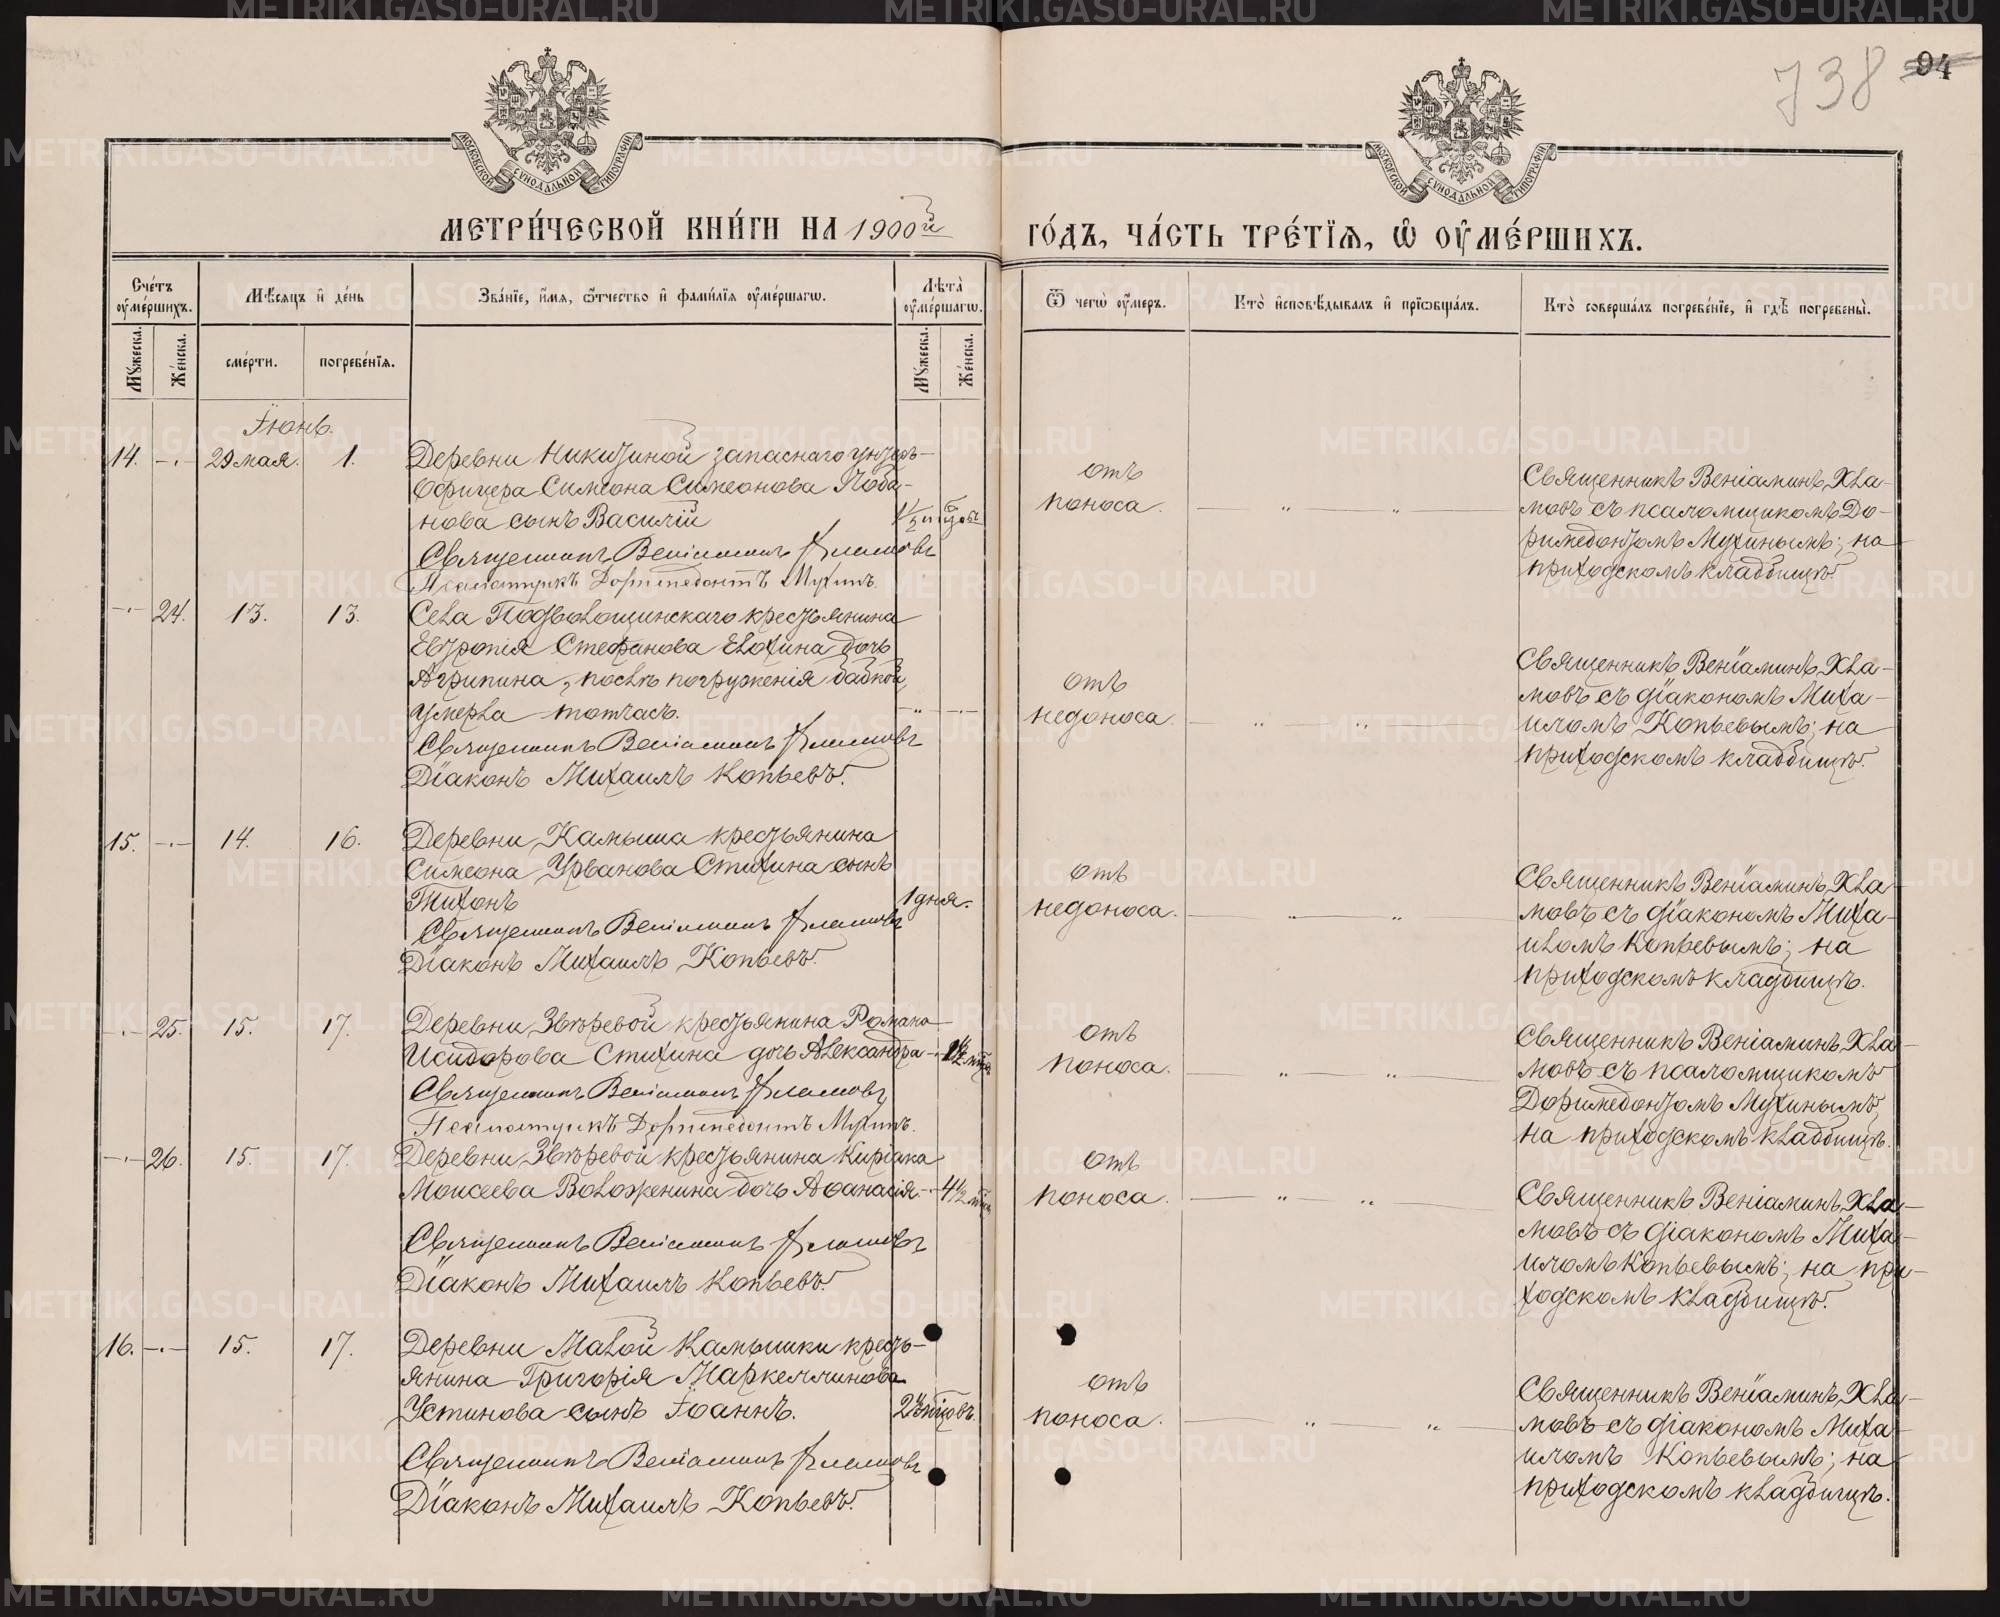 738 94
МОСКОВСКОЙ СУНОДАЛЬНОЙ ТИПОГРАФІИ
МОСКОВСКОЙ СУНОДАЛЬНОЙ ТИПОГРАФІИ
МЕТРИ́ЧЕСКОЙ КНИ́ГИ НА 1900й ГО́ДЪ, ЧА́СТЬ ТРЕ́ТІѦ, Ѽ ОУМЕ́РШИХЪ.
Сче́тъ оумершихъ.
Мѣсяцъ и де́нь
Зва́нїе, и́мя, ѿтчество и фами́лїя оумершагѡ.
Лѣта̀ оумершагѡ.
Ѿ чегѡ̀ оумеръ.
Кто̀ исповѣ́дывалъ и прїѡбща́лъ.
Кто̀ соверша́лъ погребе́нїе, и гдѣ̀ погребены̀.
Му́жеска.
Же́нска.
сме́рти.
погребе́нїя.
Му́жеска.
Же́нска.
Іюнь.
14. -.- 29 мая. 1. Деревни Никитиной запаснаго унтеръ-
офицера Симеона Симеонова Лоба-
нова сынъ Василій
Священникъ Веніаминъ Хламовъ
Псаломщикъ Доримедонтъ Мухинъ.
отъ
поноса.
Священникъ Веніаминъ Хла-
мовъ съ псаломщикомъ До-
римедонтомъ Мухинымъ; на
приходскомъ кладбищѣ.
-.- 24. 13. 13. Села Подволошинскаго крестьянина
Евтропія Стефанова Елохина дочь
Агрипина, послѣ погруженія бабкой,
умерла тотчасъ.
Священникъ Веніаминъ Хламовъ
Діаконъ Михаилъ Копьевъ.
отъ
недоноса.
Священникъ Веніаминъ Хла-
мовъ съ діакономъ Миха-
иломъ Копьевымъ; на
приходскомъ кладбищѣ.
15. -.- 14. 16. Деревни Камыша крестьянина
Симеона Урванова Стихина сынъ
Тихонъ 1 дня.
Священникъ Веніаминъ Хламовъ
Діаконъ Михаилъ Копьевъ.
отъ
недоноса.
Священникъ Веніаминъ Хла-
мовъ съ діакономъ Миха-
иломъ Копьевымъ; на
приходскомъ кладбищѣ.
-.- 25. 15. 17. Деревни Звѣревой крестьянина Романа
Исидорова Стихина дочь Александра
Священникъ Веніаминъ Хламовъ
Псаломщикъ Доримедонтъ Мухинъ.
отъ
поноса.
Священникъ Веніаминъ Хла-
мовъ съ псаломщикомъ
Доримедонтомъ Мухинымъ,
на приходскомъ кладбищѣ.
-.- 26. 15. 17. Деревни Звѣревой крестьянина Киріака
Моисеева Воложенина дочь Афанасія. 4½ мѣсц
Священникъ Веніаминъ Хламовъ
Діаконъ Михаилъ Копьевъ.
отъ
поноса.
Священникъ Веніаминъ Хла-
мовъ съ діакономъ Миха-
иломъ Копьевымъ; на при-
ходскомъ кладбищѣ.
16. -.- 15. 17. Деревни Малой Камышки кресть-
янина Григорія Маркеллинова
Устинова сынъ Іоаннъ. 2½ мѣсцовъ.
Священникъ Веніаминъ Хламовъ
Діаконъ Михаилъ Копьевъ.
отъ
поноса.
Священникъ Веніаминъ Хла-
мовъ съ діакономъ Миха-
иломъ Копьевымъ; на
приходскомъ кладбищѣ.
METRIKI.GASO-URAL.RU